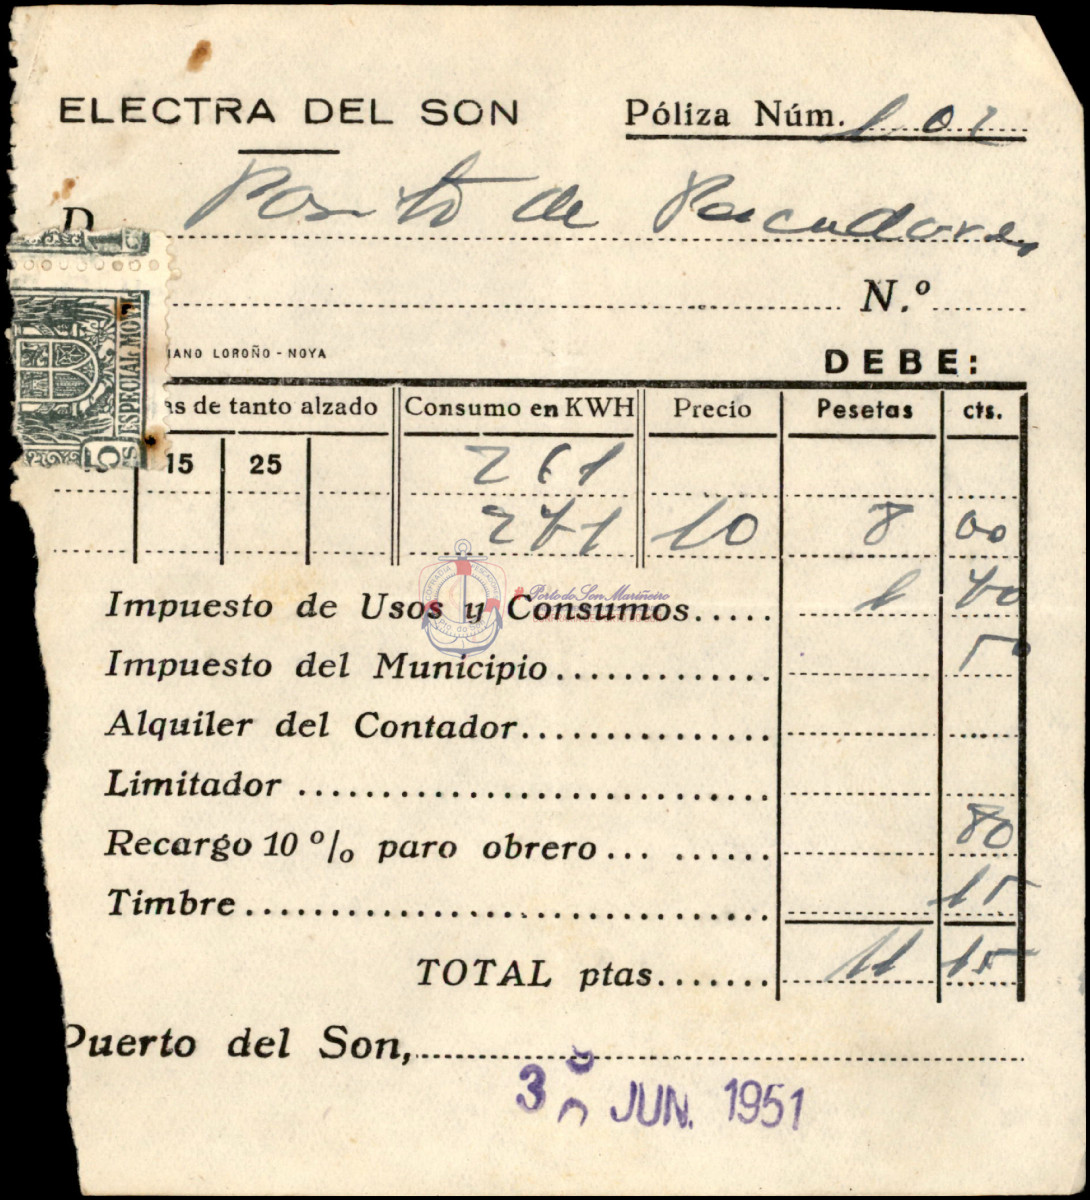 ELECTRA DEL SON
Póliza Núm. 102
D. Posito de Pescadores
N.º
IANO LOROÑO - NOYA
DEBE:
as de tanto alzado Consumo en KWH Precio Pesetas cts.
15 25 261
271 10 8 00
Impuesto de Usos y Consumos..... 1 70
Impuesto del Municipio............. 50
Alquiler del Contador...............
Limitador ............................
Recargo 10 % paro obrero... ....... 80
Timbre............................... 15
TOTAL ptas....... 11 15
Puerto del Son,
3 JUN. 1951
ESPECIAL MOVIL
5 CS
COFRADIA PESCADORES
Porto do Son Mariñeiro